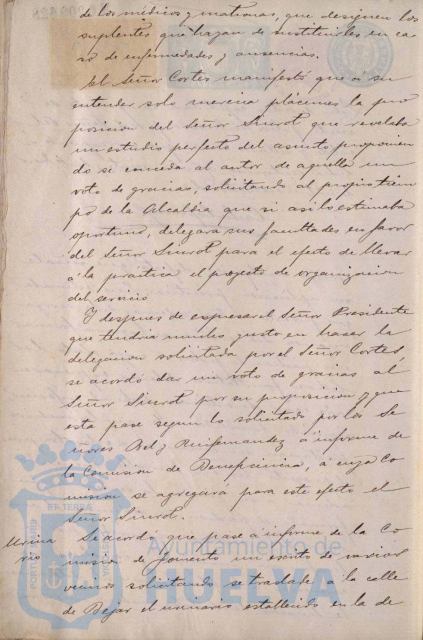 de los médicos y matronas, que designen los
suplentes que hayan de sustituirles en ca
so de enfermedades y ausencias.
El Señor Cortes manifestó que a su
entender solo merecia plácemes la pro
posicion del Señor Siurot que revelaba
un estudio perfecto del asunto proponien
do se conceda al autor de aquella un
voto de gracias, solicitando al propio tiem
po de la Alcaldia que si asi lo estimaba
oportuno, delegara sus facultades en favor
del Señor Siurot para el efecto de llevar
á la práctica el proyecto de organizacion
del servicio
Y despues de espresar el Señor Presidente
que tendria mucho gusto en hacer la
delegacion solicitada por el Señor Cortes,
se acordó dar un voto de gracias al
Señor Siurot por su proposicion y que
esta pase segun lo solicitado por los Se
ñores Bel y Ruifernandez á informe de
la Comision de Beneficencia, á cuya Co
mision se agregará para este efecto el
Señor Siurot.
Urina
rio
Se acordó que pase á informe de la Co
mision de fomento un escrito de varios
vecinos solicitando se traslade á la calle
de Bejar el urinario establecido en la de
Ayuntamiento de
HUELVA